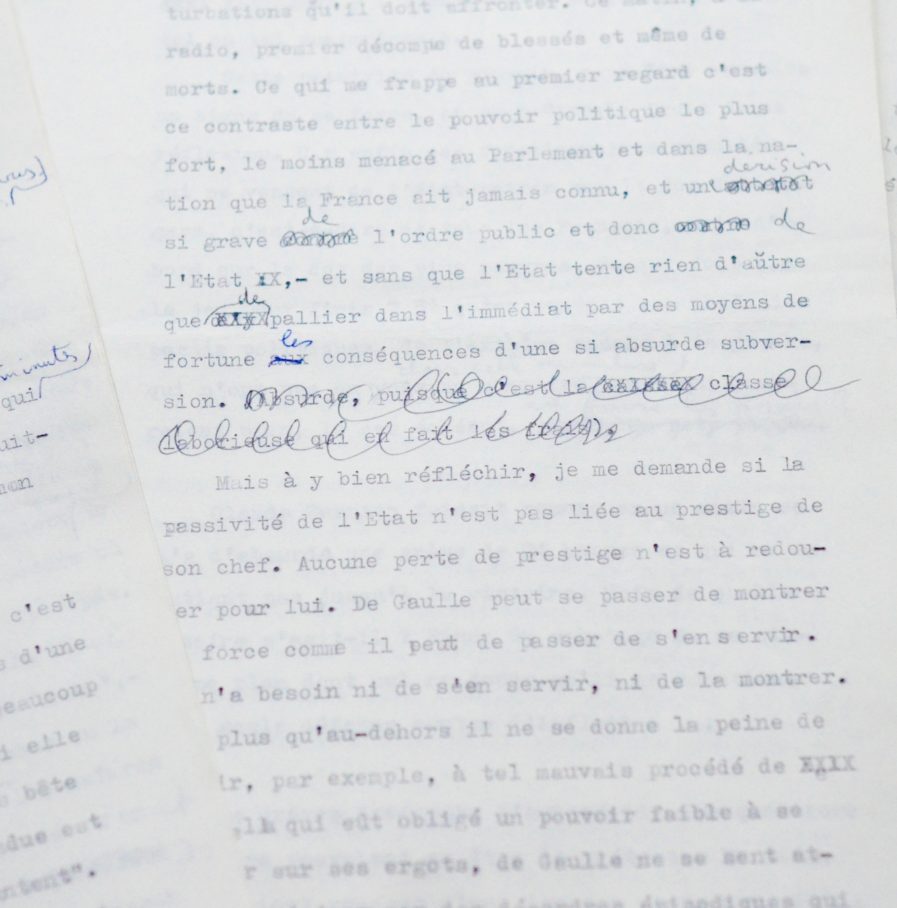 turbations qu'il doit affronter. Ce matin, à la
radio, premier décompe de blessés et même de
morts. Ce qui me frappe au premier regard c'est
ce contraste entre le pouvoir politique le plus
fort, le moins menacé au Parlement et dans la na-
derision
tion que la France ait jamais connu, et un
de
si grave contre l'ordre public et donc contre de
l'Etat XX,- et sans que l'Etat tente rien d'aûtre
de
que pallier dans l'immédiat par des moyens de
les
fortune aux conséquences d'une si absurde subver-
sion. (Absurde, puisque c'est la classe
laborieuse qui en fait les frais).
Mais à y bien réfléchir, je me demande si la
passivité de l'Etat n'est pas liée au prestige de
son chef. Aucune perte de prestige n'est à redou-
er pour lui. De Gaulle peut se passer de montrer
force comme il peut de passer de s'en servir.
n'a besoin ni de séen servir, ni de la montrer.
plus qu'au-dehors il ne se donne la peine de
ir, par exemple, à tel mauvais procédé de
qui eût obligé un pouvoir faible à se
r sur ses ergots, de Gaulle ne se sent at-
des désordres épisodiques qui
minutes
qui
uit-
mon
c'est
s d'une
beaucoup
i elle
bête
due est
ntent".